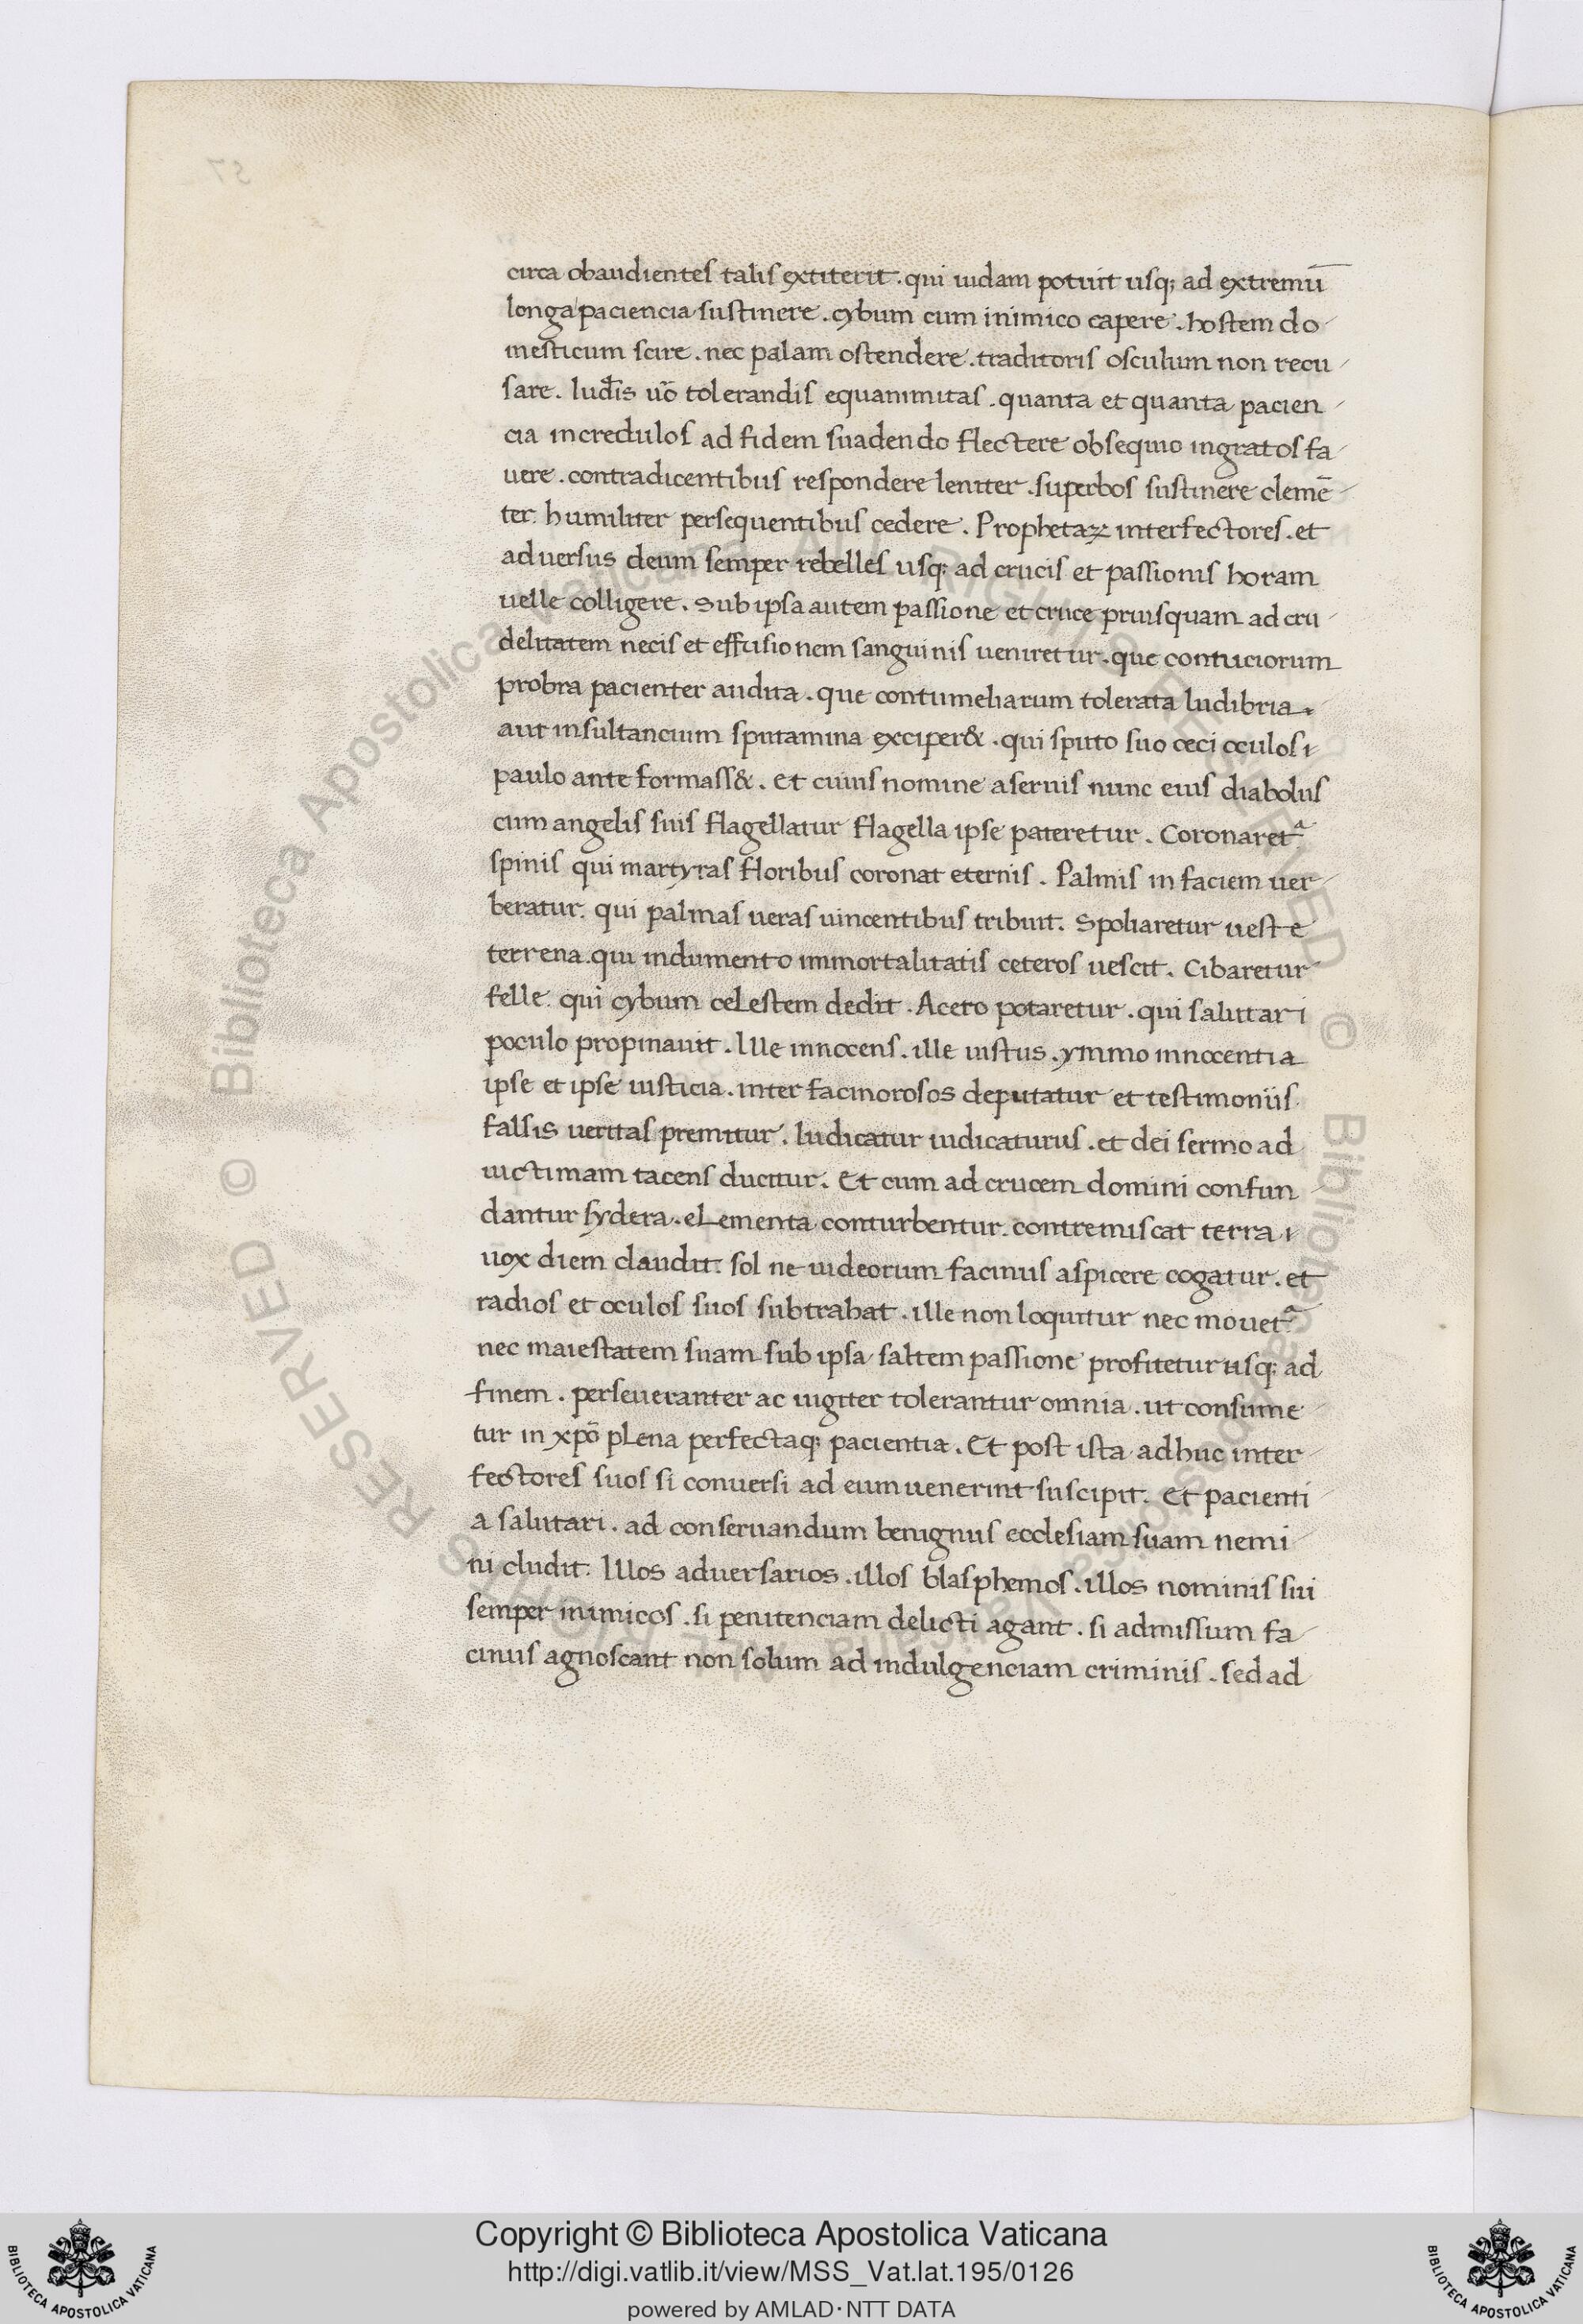 circa obaudientes talis extiterit . qui iudam potuit usq; ad extremū
longa paciencia sustinere . cybum cum inimico capere . hostem do
mesticum scire . nec palam ostendere . traditoris osculum non recu
sare . Iud̄is uō tolerandis equanimitas . quanta et quanta pacien
cia incredulos ad fidem suadendo flectere obsequio ingratos fa
uere . contradicentibus respondere leniter . superbos sustinere clemē
ter. humiliter persequentibus cedere . Prophetaꝝ interfectores . et
aduersus deum semper rebelles usq; ad crucis et passionis horam
uelle colligere . Sub ipsa autem passione et cruce priusquam ad cru
delitatem necis et effusionem sanguinis ueniretur . que conuiciorum
probra pacienter audita . que contumeliarum tolerata ludibria .
aut insultancium sputamina exciper& . qui sputo suo ceci oculos
paulo ante formass& . et cuius nomine a seruis nunc eius diabolus
cum angelis suis flagellatur flagella ipse pateretur . Coronaret᷑
spinis qui martyras floribus coronat eternis . Palmis in faciem uer
beratur. qui palmas ueras uincentibus tribuit. Spoliaretur ueste
terrena . qui indumento immortalitatis ceteros uescit . Cibaretur
felle. qui cybum celestem dedit . Aceto potaretur . qui salutari
poculo propinauit . Ille innocens . ille iustus . ymmo innocentia
ipse et ipse iusticia . inter facinorosos deputatur et testimoniis
falsis ueritas premitur . Iudicatur iudicaturus . et dei sermo ad
uictimam tacens ducitur . Et cum ad crucem domini confun
dantur sydera . elementa conturbentur . contremiscat terra
uox diem claudit. sol ne iudeorum facinus aspicere cogatur . et
radios et oculos suos subtrahat . ille non loquitur nec mouet᷑
nec maiestatem suam sub ipsa saltem passione profitetur usq; ad
finem . perseueranter ac iugiter tolerantur omnia . ut consume
tur in xp̄o plena perfectaq; pacientia . Et post ista adhuc inter
fectores suos si conuersi ad eum uenerint suscipit . et pacienti
a salutari . ad conseruandum benignus ecclesiam suam nemi
ni cludit. Illos aduersarios . illos blasphemos . illos nominis sui
semper inimicos . si penitenciam delicti agant . si admissum fa
cinus agnoscant non solum ad indulgenciam criminis . sed ad
Copyright © Biblioteca Apostolica Vaticana
http://digi.vatlib.it/view/MSS_Vat.lat.195/0126
powered by AMLAD·NTT DATA